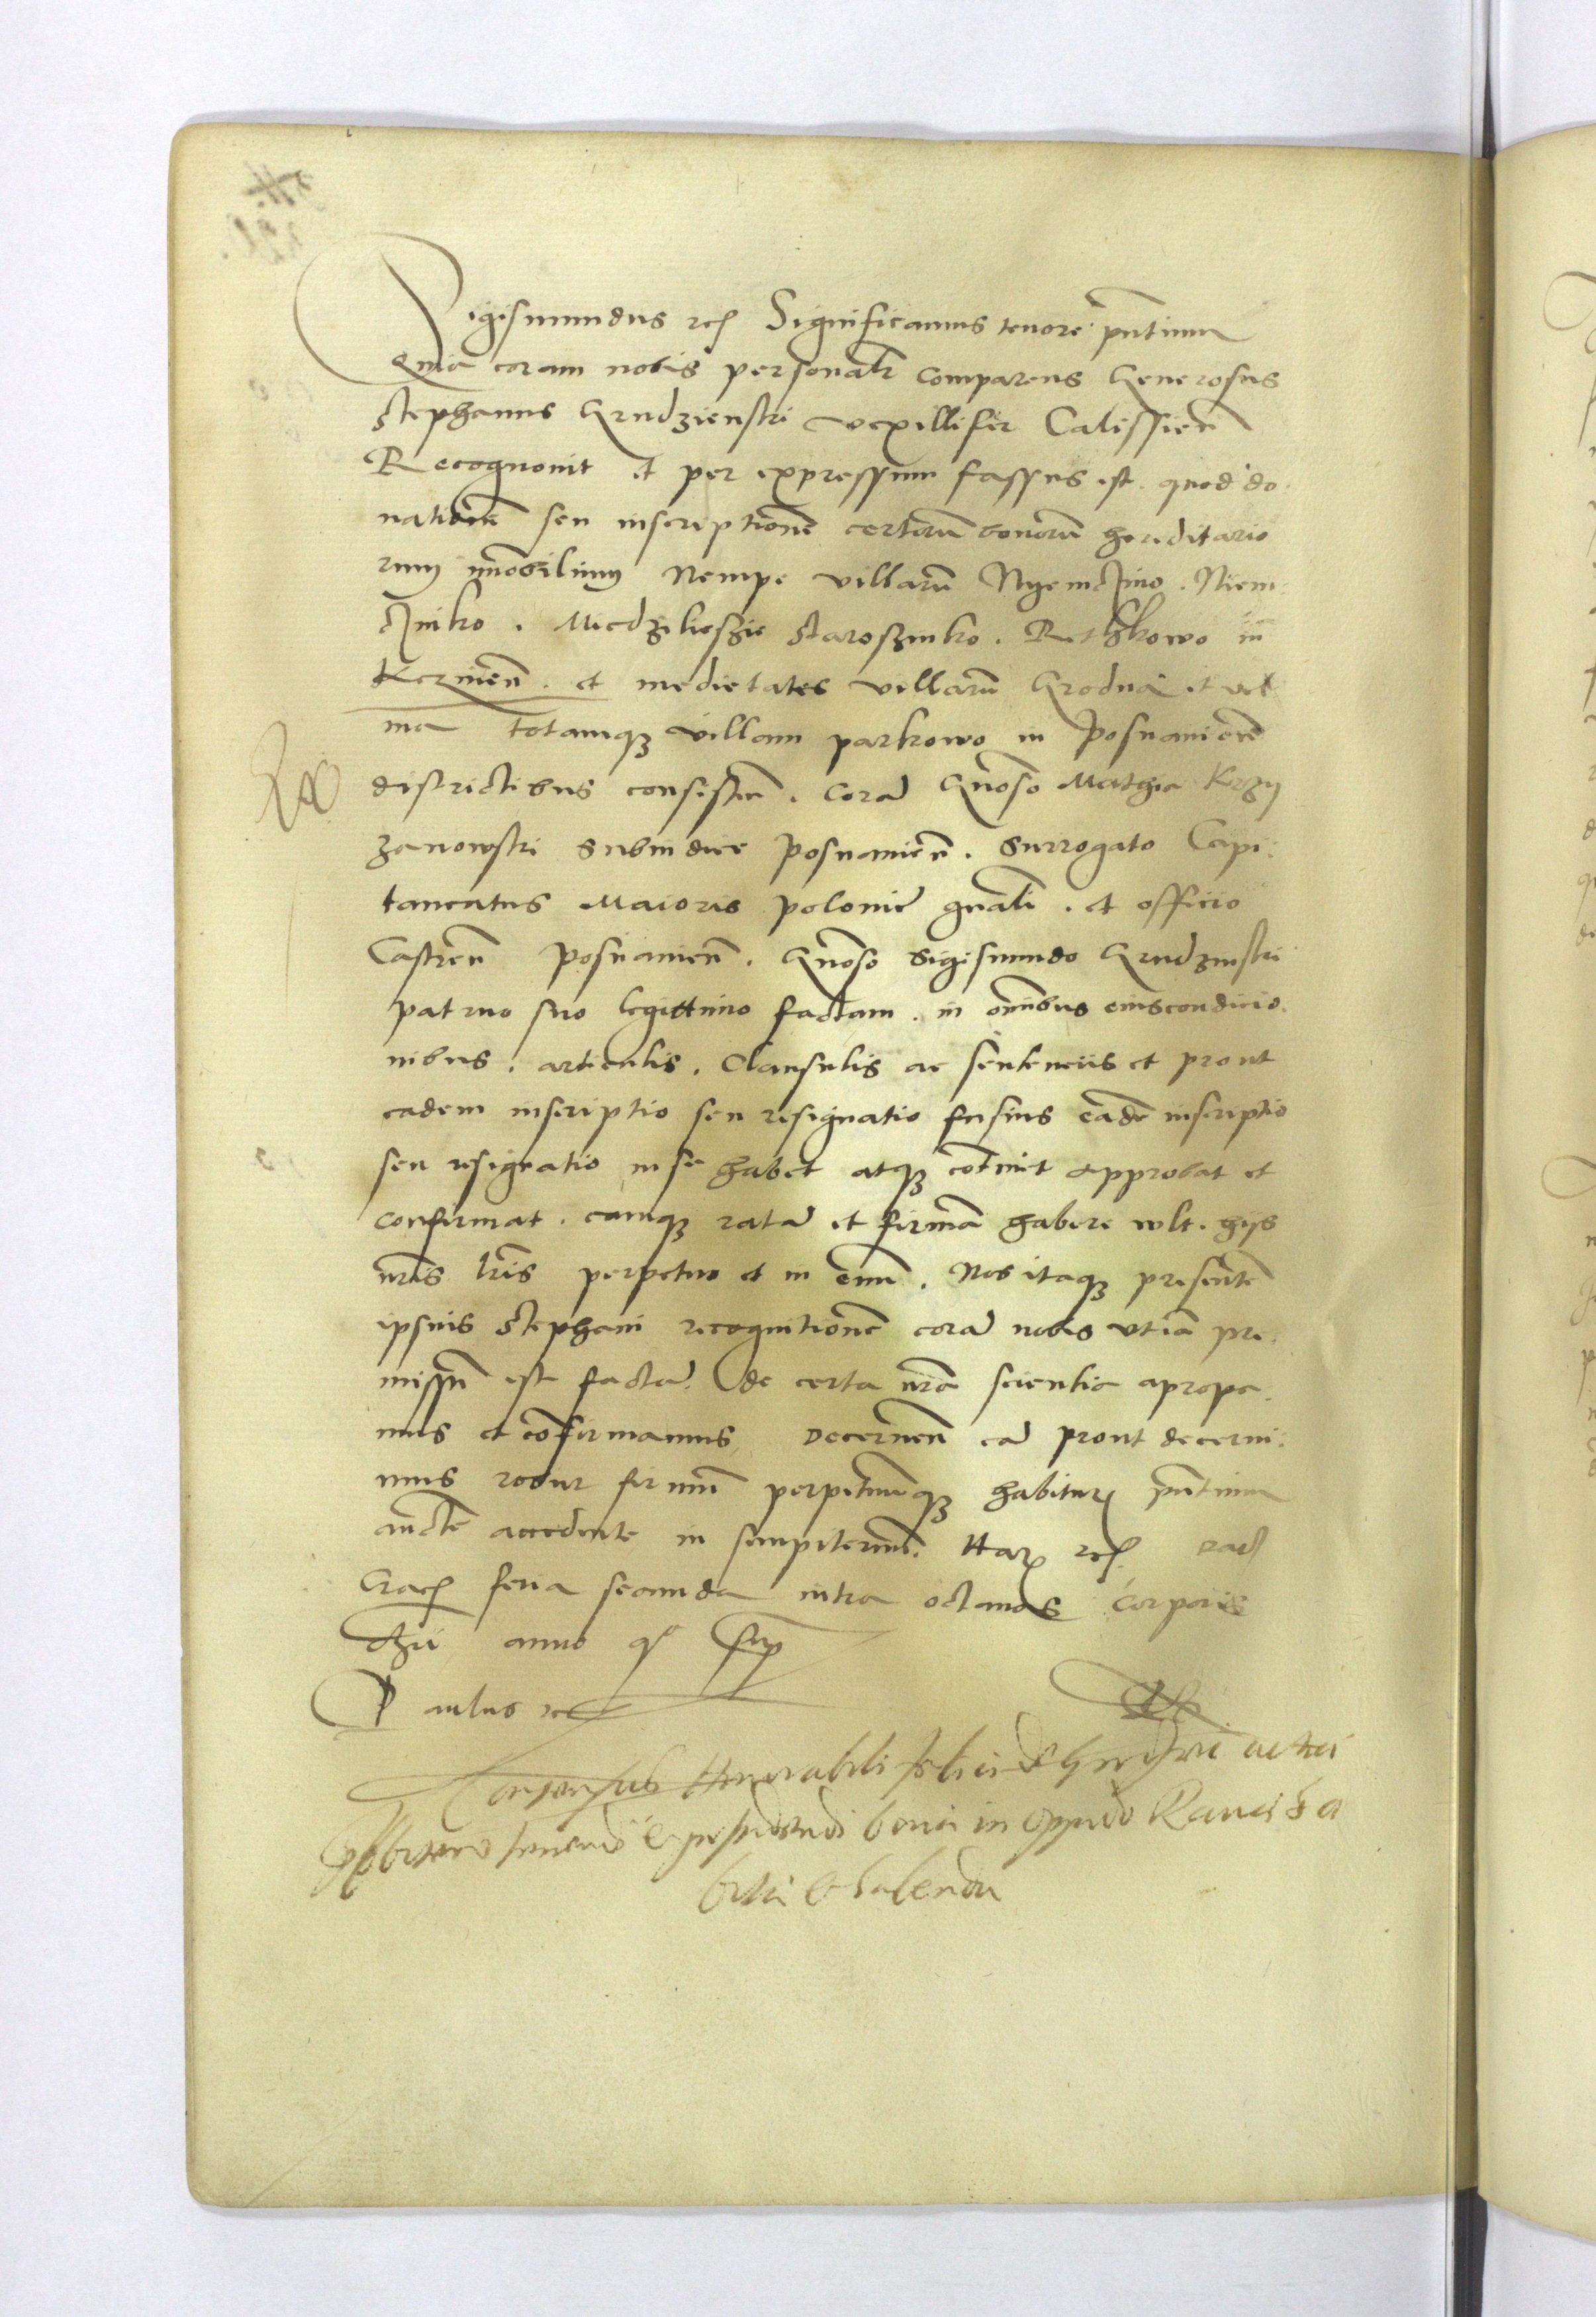 Sigismundus rex Significamus tenore pntium
Quia coram nobis personalr comparens Generosus
Stephanus Grudzienski vexillifer Calissien
Recognouit et per expressum fassus est. quod do
nationem seu inscriptionem certorum bonorum hereditario
rum immobilium Nempe villarum Nyemczino. Niem
czinko. Miedzilieszie Staroszinko. Ruthkowo in
Kczinen. et medietates villarum Grodna et vel
na totamque villam parkowo in Posnanien
districtibus consisten. Coram Gnoso Mathia Krzy
zanowski Subiudice Posnanien. Surrogato Capi:
taneatus Maioris polonie gnali. et officio
Castren Posnanien. Gnoso Sigismundo Grudzinski
patruo suo legittimo factam. in omnibus eius condicio
nibus. articulis. Clausulis ac sentenciis et prout
eadem inscriptio seu resignatio fusius eadem inscriptio
seu resignatio in se habet atque continet approbat et
confirmat. eamque ratam et firmam habere wlt. hijs
nris lris perpetuo et in euum. Nos itaque presentem
ipsius Stephani recognitionem coram nobis vt iam pre.
missum est factam. de certa nra scientia aproba
mus et confirmamus Decernen eam prout decerni:
mus robur firmum perpetuumque habituram pntium
aucte accedente in sempiternum. Harum rex
Crac feria secunda intra octauas Corporis
chri anno quo supra
Paulus
Consensus Honorabili
bona in oppido